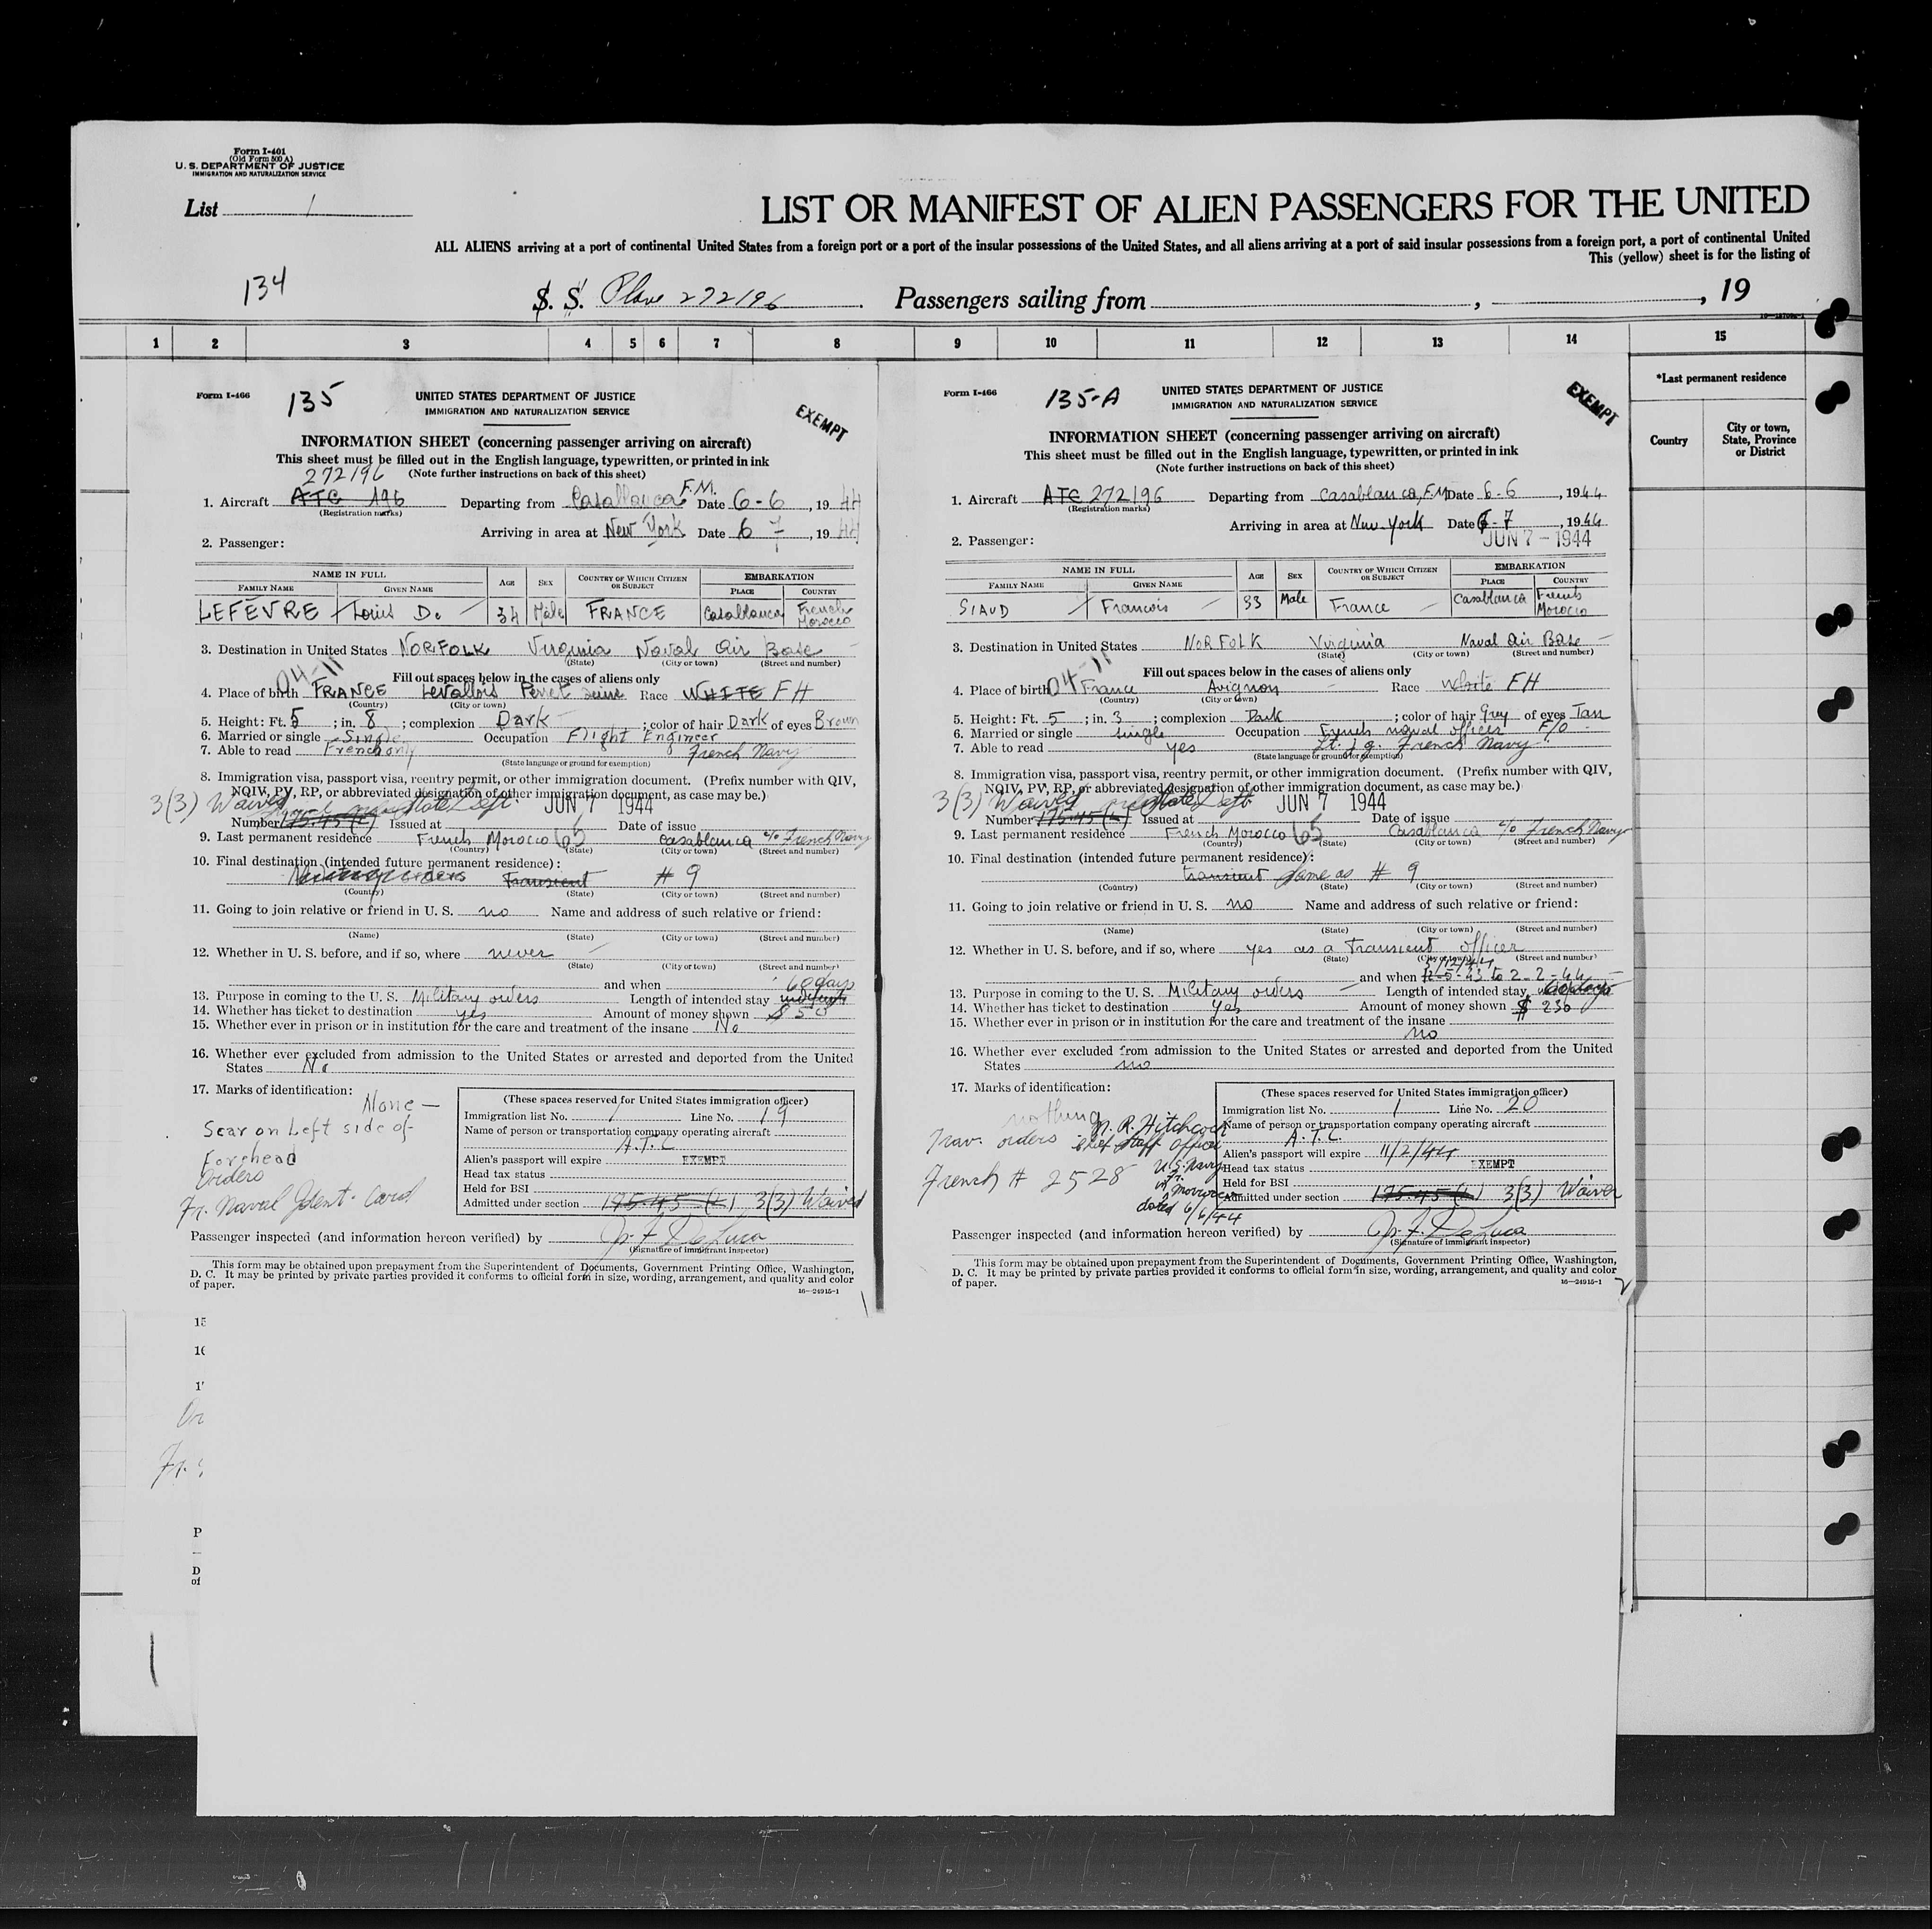 Form I-401
(Old Form 500 A)
U. S. DEPARTMENT OF JUSTICE
IMMIGRATION AND NATURALIZATION SERVICE
List 1
LIST OR MANIFEST OF ALIEN PASSENGERS FOR THE UNITED
ALL ALIENS arriving at a port of continental United States from a foreign port or a port of the insular possessions of the United States, and all aliens arriving at a port of said insular possessions from a foreign port, a port of continental United
This (yellow) sheet is for the listing of
134
S. S. Plane 272196 Passengers sailing from , , 19
1 2 3 4 5 6 7 8 9 10 11 12 13 14 15
*Last permanent residence
Country
City or town, State, Province or District
Form I-466
135
UNITED STATES DEPARTMENT OF JUSTICE
IMMIGRATION AND NATURALIZATION SERVICE
EXEMPT
INFORMATION SHEET (concerning passenger arriving on aircraft)
This sheet must be filled out in the English language, typewritten, or printed in ink
(Note further instructions on back of this sheet)
272196
1. Aircraft ATC 196 Departing from Casablanca F.M. Date 6-6, 1944
(Registration marks)
Arriving in area at New York Date 6 7, 1944
2. Passenger:
NAME IN FULL AGE SEX COUNTRY OF WHICH CITIZEN OR SUBJECT EMBARKATION
FAMILY NAME GIVEN NAME PLACE COUNTRY
LEFEVRE Louis D. 34 Male FRANCE Casablanca French Morocco
3. Destination in United States NORFOLK Virginia Naval Air Base
(State) (City or town) (Street and number)
04-11
Fill out spaces below in the cases of aliens only
4. Place of birth FRANCE Levallois Perret Seine Race WHITE FH
(Country) (City or town)
5. Height: Ft. 5; in. 8; complexion Dark; color of hair Dark of eyes Brown
6. Married or single Single Occupation Flight Engineer
7. Able to read French only French Navy
(State language or ground for exemption)
8. Immigration visa, passport visa, reentry permit, or other immigration document. (Prefix number with QIV,
NQIV, PV, RP, or abbreviated designation of other immigration document, as case may be.)
3(3) Waived State Dept. JUN 7 1944
Number 175.45 (L) Issued at Date of issue
9. Last permanent residence French Morocco 65 Casablanca c/o French Navy
(Country) (State) (City or town) (Street and number)
10. Final destination (intended future permanent residence):
Transient # 9
(Country) (State) (City or town) (Street and number)
11. Going to join relative or friend in U. S. no Name and address of such relative or friend:
(Name) (State) (City or town) (Street and number)
12. Whether in U. S. before, and if so, where never
(State) (City or town) (Street and number)
and when
60 days
13. Purpose in coming to the U. S. Military orders Length of intended stay
14. Whether has ticket to destination yes Amount of money shown $ 50
15. Whether ever in prison or in institution for the care and treatment of the insane No
16. Whether ever excluded from admission to the United States or arrested and deported from the United
States No
17. Marks of identification:
None —
Scar on Left side of
Forehead
Orders
Fr. Naval Ident. Card
(These spaces reserved for United States immigration officer)
Immigration list No. 1 Line No. 19
Name of person or transportation company operating aircraft
A.T.C
Alien's passport will expire EXEMPT
Head tax status
Held for BSI
Admitted under section 175.45 (L) 3(3) Waived
Passenger inspected (and information hereon verified) by J. F. DeLuca
(Signature of immigrant inspector)
This form may be obtained upon prepayment from the Superintendent of Documents, Government Printing Office, Washington,
D. C. It may be printed by private parties provided it conforms to official form in size, wording, arrangement, and quality and color
of paper.
16—24915-1
Form I-466
135-A
UNITED STATES DEPARTMENT OF JUSTICE
IMMIGRATION AND NATURALIZATION SERVICE
EXEMPT
INFORMATION SHEET (concerning passenger arriving on aircraft)
This sheet must be filled out in the English language, typewritten, or printed in ink
(Note further instructions on back of this sheet)
1. Aircraft ATC 272196 Departing from Casablanca, F.M Date 6-6, 1944
(Registration marks)
Arriving in area at New York Date 6-7, 1944
2. Passenger: JUN 7 - 1944
NAME IN FULL AGE SEX COUNTRY OF WHICH CITIZEN OR SUBJECT EMBARKATION
FAMILY NAME GIVEN NAME PLACE COUNTRY
SIAUD Francois 33 Male France Casablanca French Morocco
3. Destination in United States NORFOLK Virginia Naval Air Base
(State) (City or town) (Street and number)
04-11
Fill out spaces below in the cases of aliens only
4. Place of birth France Avignon Race White FH
(Country) (City or town)
5. Height: Ft. 5; in. 3; complexion Dark; color of hair Grey of eyes Tan
6. Married or single single Occupation French naval officer F/O
7. Able to read yes Lt. j.g. French Navy
(State language or ground for exemption)
8. Immigration visa, passport visa, reentry permit, or other immigration document. (Prefix number with QIV,
NQIV, PV, RP, or abbreviated designation of other immigration document, as case may be.)
3(3) Waived State Dept JUN 7 1944
Number 175.45 (L) Issued at Date of issue
9. Last permanent residence French Morocco 65 Casablanca c/o French Navy
(Country) (State) (City or town) (Street and number)
10. Final destination (intended future permanent residence):
transient Same as # 9
(Country) (State) (City or town) (Street and number)
11. Going to join relative or friend in U. S. no Name and address of such relative or friend:
(Name) (State) (City or town) (Street and number)
12. Whether in U. S. before, and if so, where yes as a transient officer
(State) (City or town) (Street and number)
and when to 2-2-44
13. Purpose in coming to the U. S. Military orders Length of intended stay 60 days
14. Whether has ticket to destination Yes Amount of money shown $ 230
15. Whether ever in prison or in institution for the care and treatment of the insane
no
16. Whether ever excluded from admission to the United States or arrested and deported from the United
States no
17. Marks of identification:
nothing
Trav. orders R. Hitchcock
Chief Staff Officer
U.S. Navy
French # 2528
dated 6/6/44
(These spaces reserved for United States immigration officer)
Immigration list No. 1 Line No. 20
Name of person or transportation company operating aircraft
A.T.C.
Alien's passport will expire 11/2/44
Head tax status EXEMPT
Held for BSI
Admitted under section 175.45 (L) 3(3) Waiver
Passenger inspected (and information hereon verified) by J. F. DeLuca
(Signature of immigrant inspector)
This form may be obtained upon prepayment from the Superintendent of Documents, Government Printing Office, Washington,
D. C. It may be printed by private parties provided it conforms to official form in size, wording, arrangement, and quality and color
of paper.
16—24915-1